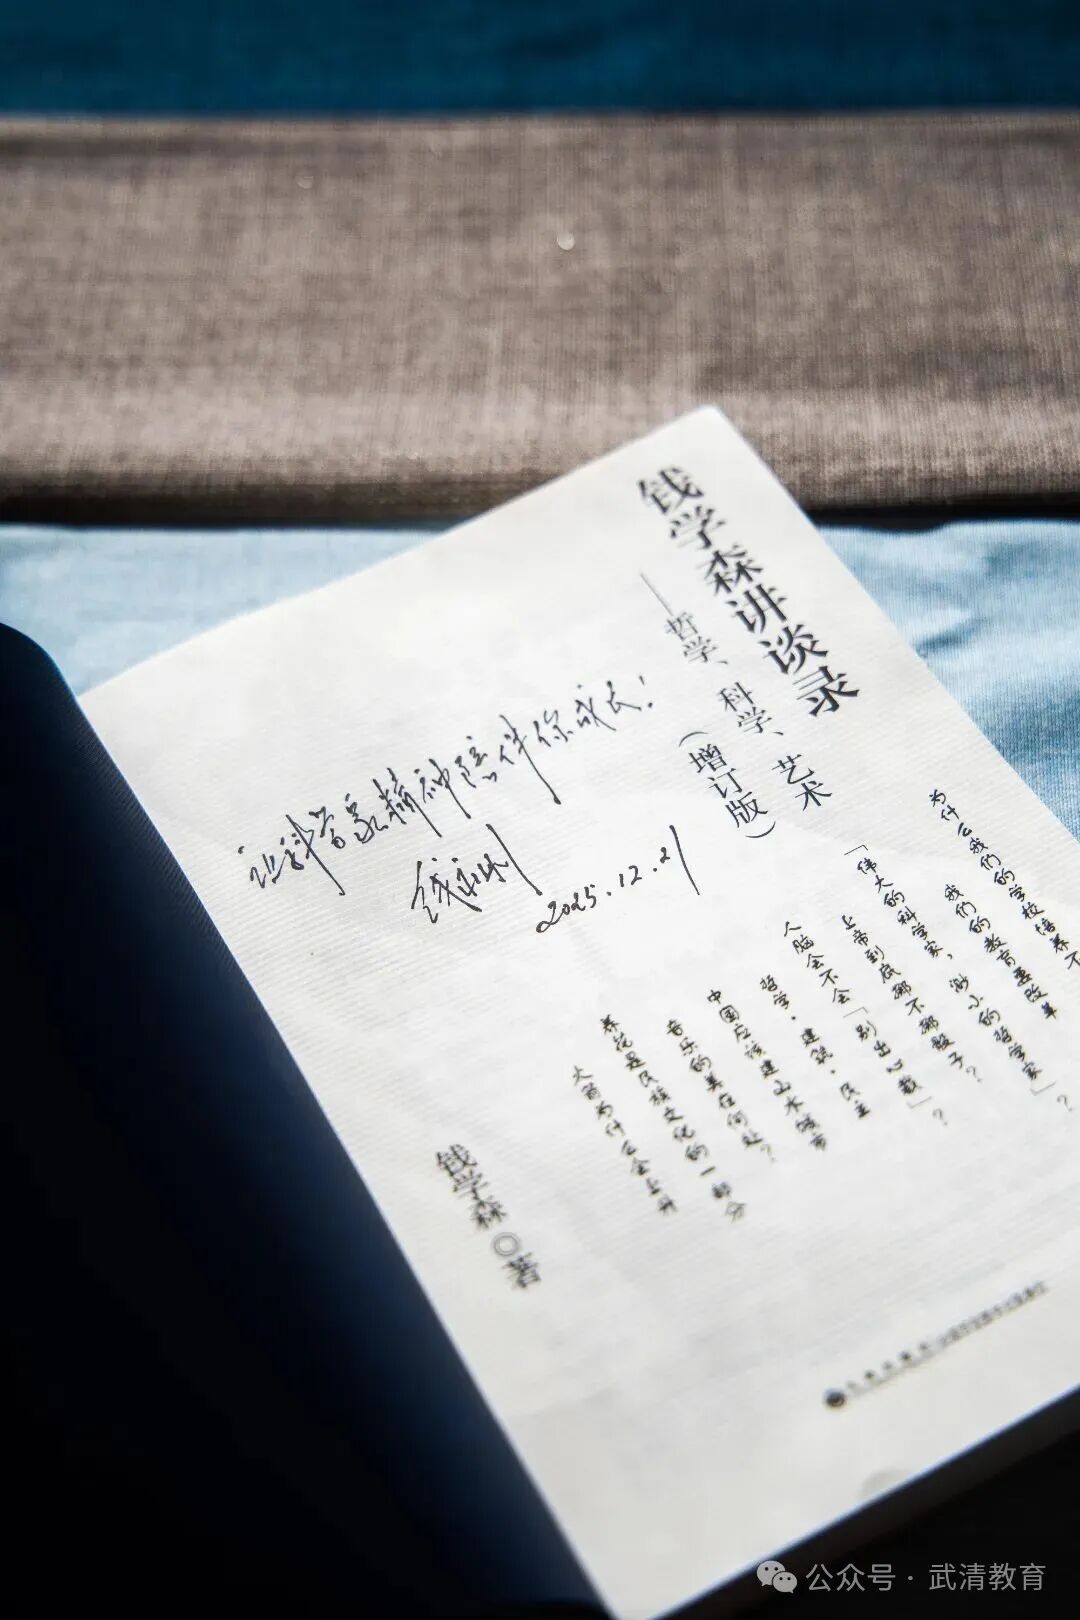 钱学森讲谈录
——哲学、科学、艺术
（增订版）
让科学家精神陪伴你成长！
钱永刚
2025.12.21
为什么我们的学校培养不
我们的教育要改革
「伟大的科学家，渺小的哲学家」？
上帝到底掷不掷骰子？
人脑会不会「别出心裁」？
哲学·建筑·民主
中国应该建山水城市
音乐的美在何处？
养花是民族文化的一部分
火箭为什么会上升
钱学森◎著
公众号·武清教育